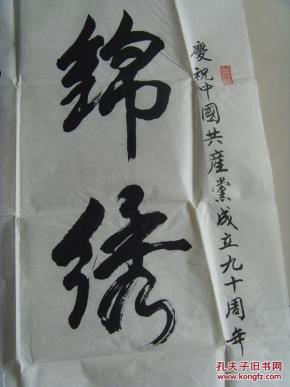 慶祝中國共産黨成立九十周年
錦绣
孔夫子旧书网
kongfz.com